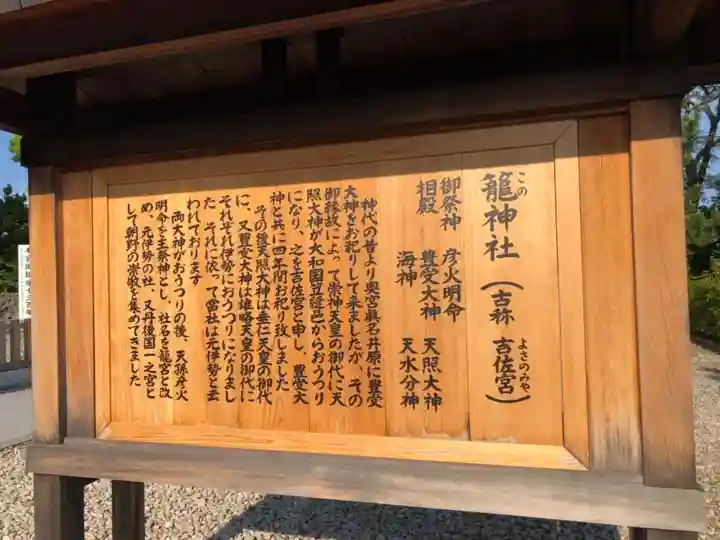 籠神社(吉称 吉佐宮)
この
よさのみや
御祭神 彦火明命
相殿 豊受大神 天照大神
海神 天水分神
神代の昔より奥宮眞名井原に豊受
大神をお祀りして来ましたが、その
御縁故によって崇神天皇の御代に天
照大神が大和国笠縫邑からおうつり
になり、之を吉佐宮と申し、豊受大
神と共に四年間お祀り致しました
その後天照大神は垂仁天皇の御代
に、又豊受大神は雄略天皇の御代に
それぞれ伊勢におうつりになりまし
た それに依って當社は元伊勢と云
われております
両大神がおうつりの後、天孫彦火
明命を主祭神とし、社名を籠宮と改
め、元伊勢の社、又丹後国一之宮と
して朝野の崇敬を集めてきました